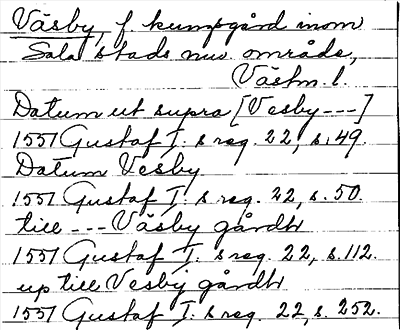 Väsby, f. kungsgård inom
Sala stads nuv. område,
Västm. l.
Datum ut supra [Vesby ---]
1551 Gustaf I:s reg. 22, s. 49.
Datum Vesby
1551 Gustaf I:s reg. 22, s. 50.
till --- Väsby gårdh
1551 Gustaf I:s reg. 22, s. 112.
up till Vesby gårdh
1551 Gustaf I:s reg. 22, s. 252.